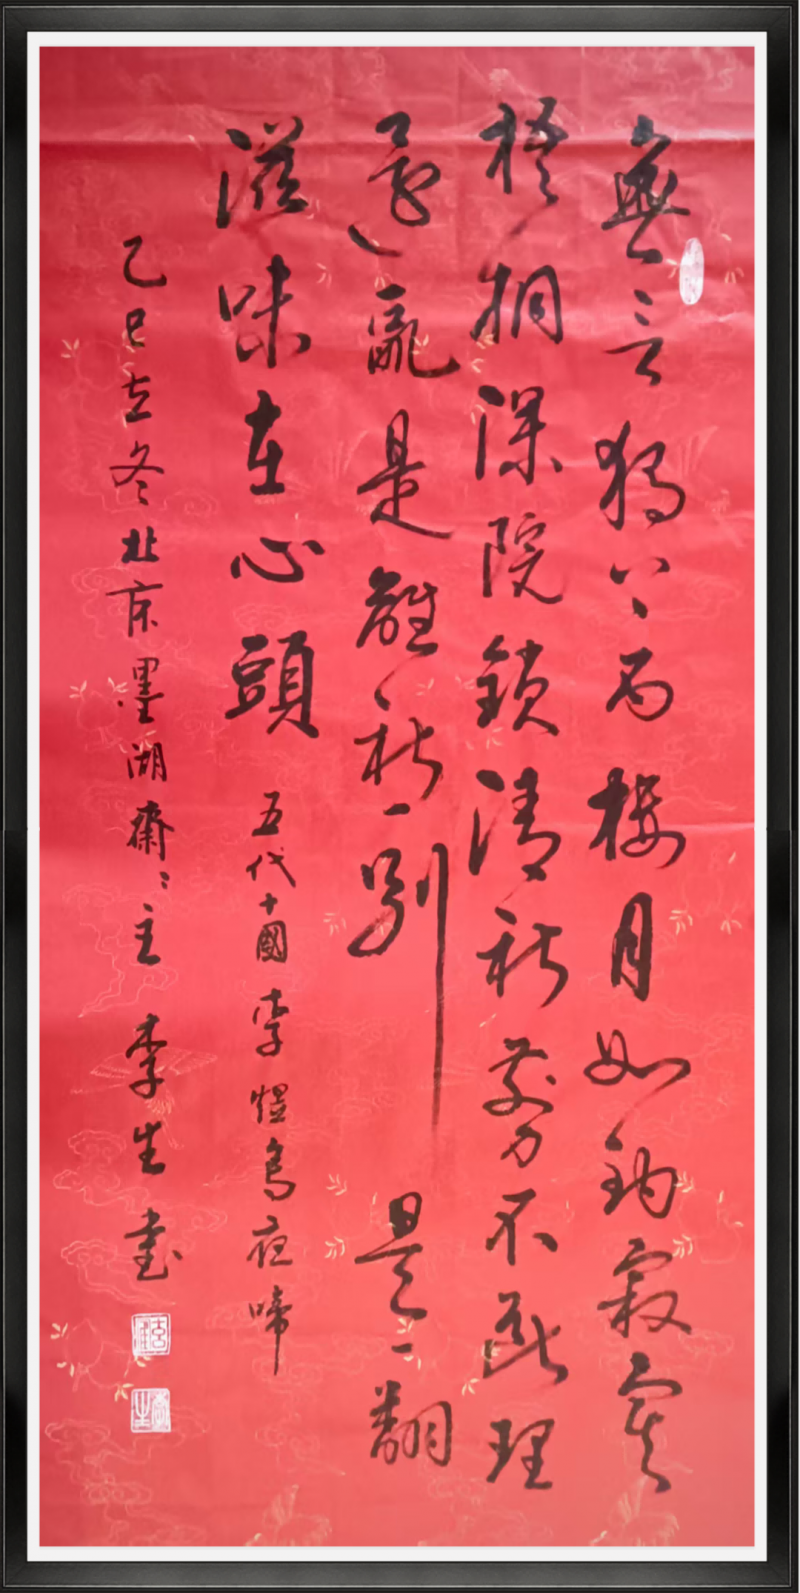 無言獨上西樓月如鈎寂寞
梧桐深院鎖清秋剪不斷理
還亂是離愁別是一翻
滋味在心頭 五代十國李煜烏夜啼
乙巳立冬北京墨湖齋々主李生書